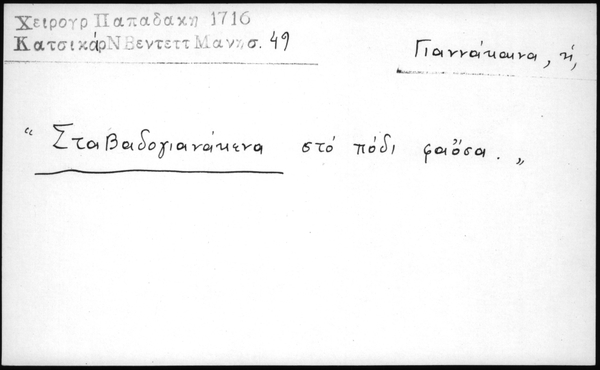 Χειρογρ Παπαδακη 1716
Κατσικάρ Ν Βεντεττ Μανης. 49
Γιαννάκαινα, ἡ,
“ Σταβαδογιανάκενα στό πόδι φαὅσα. „